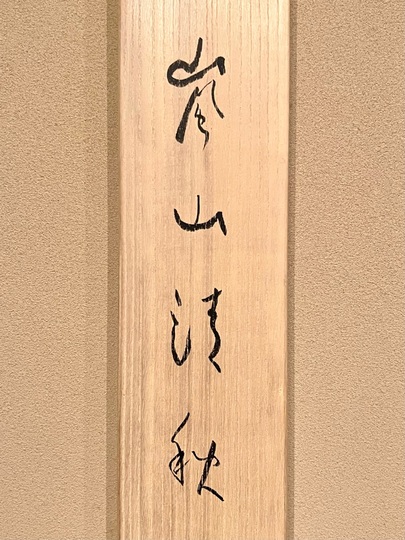 嵐山清秋